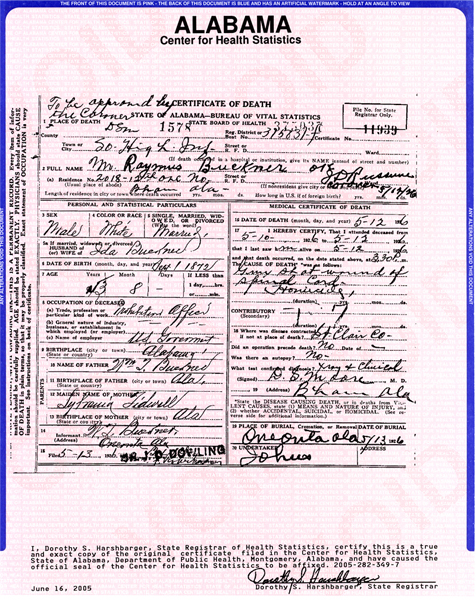 THE FRONT OF THIS DOCUMENT IS PINK - THE BACK OF THIS DOCUMENT IS BLUE AND HAS AN ARTIFICIAL WATERMARK - HOLD AT AN ANGLE TO VIEW
ALABAMA
Center for Health Statistics
To be approved by CERTIFICATE OF DEATH
The Coroner STATE OF ALABAMA—BUREAU OF VITAL STATISTICS
STATE BOARD OF HEALTH
File No. for State Registrar Only.
11939
1 PLACE OF DEATH
1578
County
Reg. District or Beat No.
Certificate No.
Town or City So. High Inf. Street or R. F. D.
(If death occurred in a hospital or institution, give its NAME instead of street and number)
2 FULL NAME Mr. Raymus Buckner
(a) Residence No. 2018-15 Street or R. F. D.
(Usual place of abode) Bham ala
(If nonresident give city or
Length of residence in city or town where death occurred yrs. mos. ds. How long in U.S. if of foreign birth? yrs.
PERSONAL AND STATISTICAL PARTICULARS
3 SEX Male
4 COLOR OR RACE White
5 SINGLE, MARRIED, WIDOWED, OR DIVORCED (Write the word)
5a If married, widowed, or divorced
HUSBAND of (or) WIFE of Ida Buckner
6 DATE OF BIRTH (month, day, and year)
7 AGE Years Months Days If LESS than 1 day, hrs. or min.
8
8 OCCUPATION OF DECEASED
(a) Trade, profession or particular kind of work Prohibition Officer
(b) General nature of industry, business, or establishment in which employed (or employer)
(c) Name of employer
9 BIRTHPLACE (city or town) (State or country) Alabama
10 NAME OF FATHER
11 BIRTHPLACE OF FATHER (city or town) (State or country) Ala.
12 MAIDEN NAME OF MOTHER
13 BIRTHPLACE OF MOTHER (city or town) (State or country)
14 Informant (Address) Oneonta Ala
15 Filed 5-13, DR. J. D. DOWLING
PARENTS
MEDICAL CERTIFICATE OF DEATH
16 DATE OF DEATH (month, day, and year) 5-12
17 I HEREBY CERTIFY, That I attended deceased from 5-10 to 5-12
that I last saw him alive on 5-12
and that death occurred, on the date stated above, at
The CAUSE OF DEATH* was as follows:
Gun Shot wound of
spinal Cord
Homicide
(duration) yrs. mos. ds.
CONTRIBUTORY (Secondary)
(duration) yrs. mos. ds.
18 Where was disease contracted if not at place of death? St. Clair Co
Did an operation precede death? No Date of
Was there an autopsy? No
What test confirmed diagnosis? Xray & Clinical
(Signed) D. S. Moore M. D.
(Address) Bham ala
*State the DISEASE CAUSING DEATH, or in deaths from VIOLENT CAUSES, state (1) MEANS AND NATURE OF INJURY, and (2) whether ACCIDENTAL, SUICIDAL, or HOMICIDAL. (See reverse side for additional information)
19 PLACE OF BURIAL, Cremation, or Removal DATE OF BURIAL
Oneonta ala 5/13 1926
20 UNDERTAKER ADDRESS
Johns
I, Dorothy S. Harshbarger, State Registrar of Health Statistics, certify this is a true
and exact copy of the original certificate filed in the Center for Health Statistics,
State of Alabama, Department of Public Health, Montgomery, Alabama, and have caused the
official seal of the Center for Health Statistics to be affixed. 2005-282-349-7
Dorothy S. Harshbarger
June 16, 2005 Dorothy S. Harshbarger, State Registrar